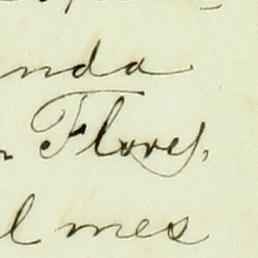 nda
n Flores,
l mes